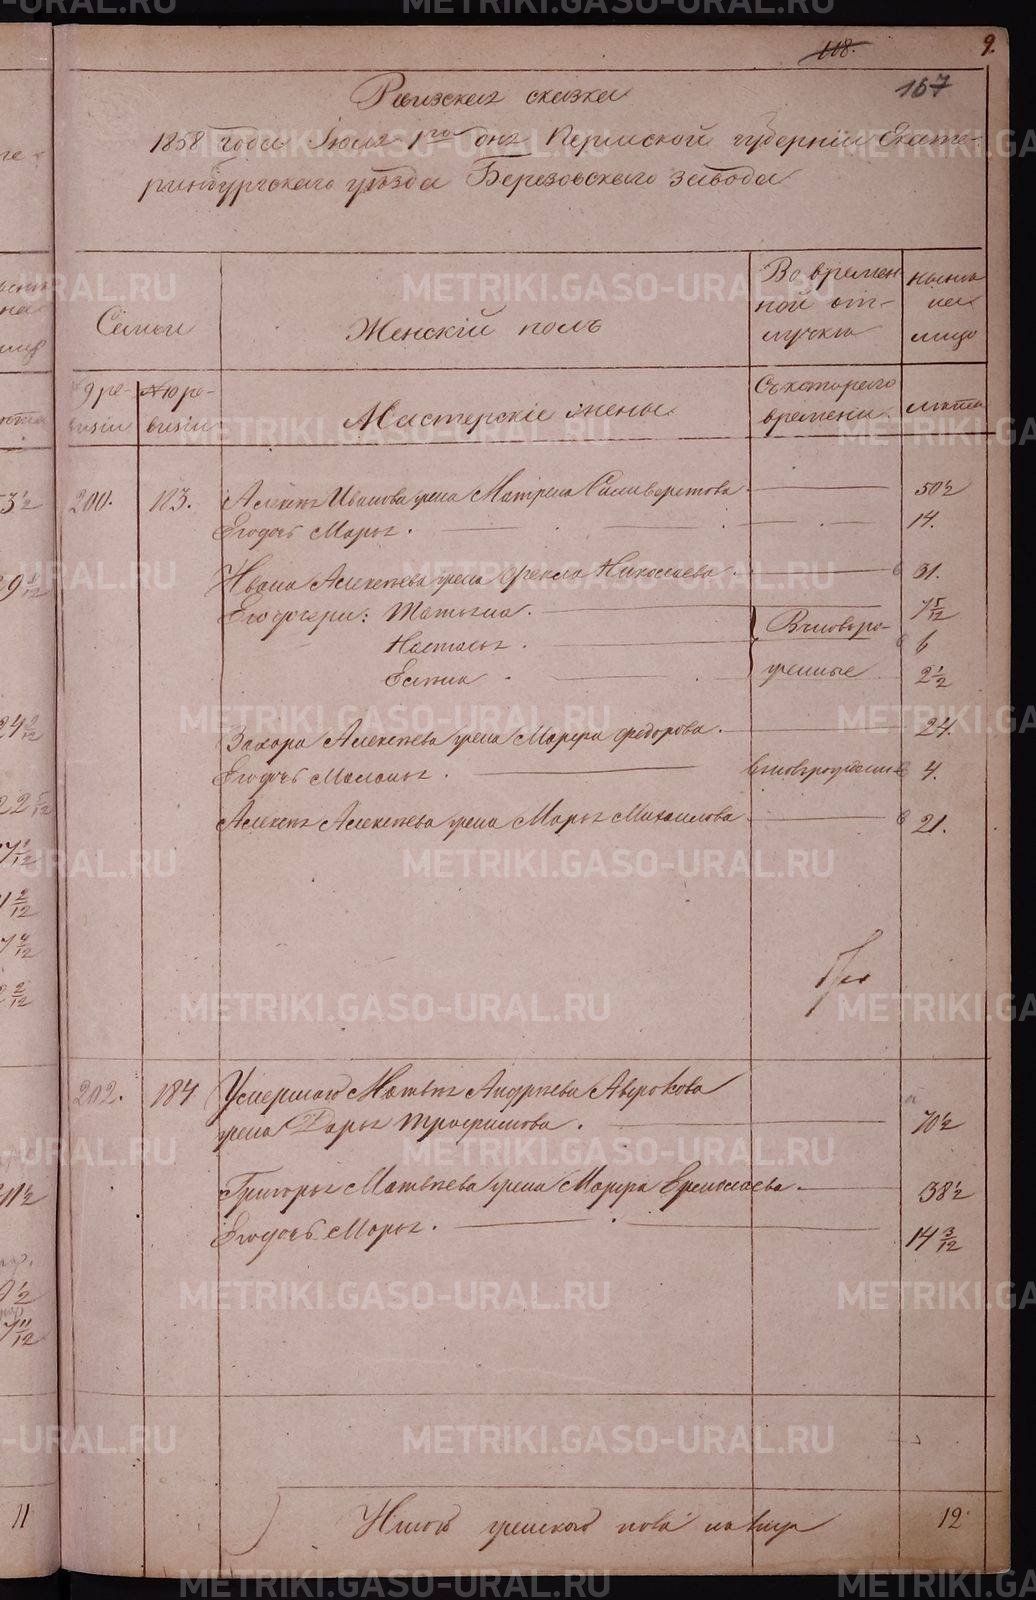 118.
9.
157
Ревизская сказка
1858 года Июля 1го дня Пермской губернии Екате-
ринбургскаго уѣзда Березовскаго завода
Семьи
Женскій полъ
Во времен
ной от-
лучкѣ
нынѣ
на
лицо
9 ре-
визіи
№ 10 ре-
визіи
Мастерскіе жены
Съ котораго
времени
лѣта
200. 183. Алексѣя Иванова жена Матрена Селиверстова 50½
Его дочь Марья. 14.
Ивана Алексѣева жена Фекла Николаева. 31.
Его дочери: Татьяна. 7 5/12
Настасья. Вновьро- 6
Евгенія жденные 2½
Захара Алексѣева жена Марфа Федорова. 24.
Его дочь Маланья. вновьрожденна 4.
Алексѣя Алексѣева жена Марья Михаилова 21.
202. 184. Умершаго Матвѣя Андреева Аверокова
жена Дарья Трофимова. 70½
Григорья Матвѣева жена Марфа Ермолаева. 38½
Его дочь Марья. 14 3/12
Итого женскаго пола на лицо 12
METRIKI.GASO-URAL.RU